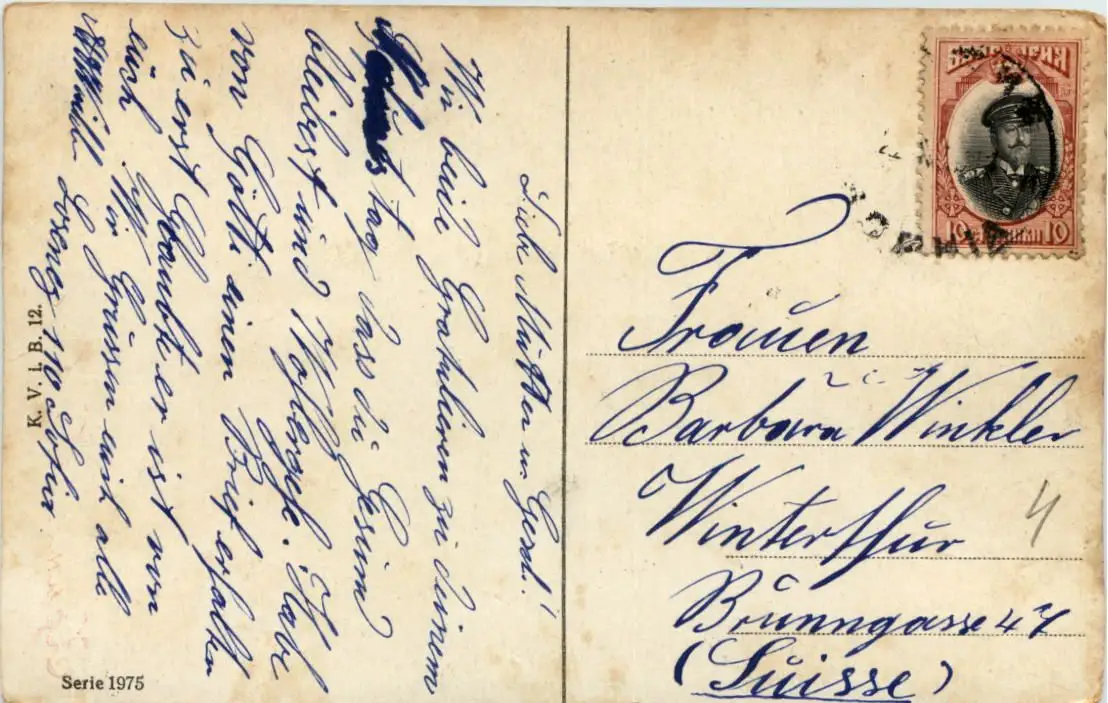 Liebe Mutter u. Gesd.!
Wir beide Gratulieren zu deinem
tag dass du Gesund
bleibst und Wohlergehe. Habe
von Götti einen Brief erhalten
zu erst Glaubte er ist von
euch. Wir Grüssen euch alle
Losenegg No Sofia
K. V. i. B. 12.
Serie 1975
10 10
СОФИЯ
Frauen
Barbara Winkler
Winterthur
Brunngasse 47
(Suisse)
4